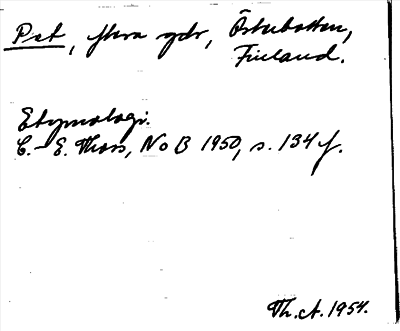 Pet, flera gdr, Österbotten,
Finland.
Etymologi.
C.-E. Thors, NoB 1950, s. 134 f.
Th. A. 1954.